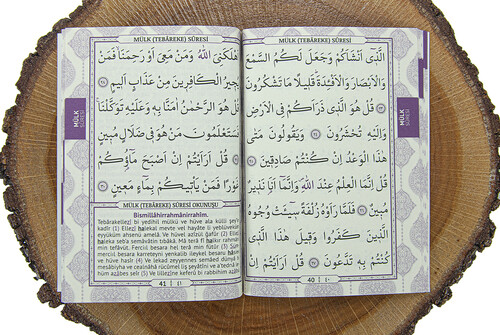 MÜLK (TEBÂREKE) SÛRESİ
الَّذِٓي اَنْشَاَكُمْ وَجَعَلَ لَكُمُ السَّمْعَ
وَالْاَبْصَارَ وَالْاَفْـِٔدَةَ قَلِيلًا مَا تَشْكُرُونَ
﴿٢٣﴾ قُلْ هُوَ الَّذِي ذَرَاَكُمْ فِي الْاَرْضِ
وَاِلَيْهِ تُحْشَرُونَ ﴿٢٤﴾ وَيَقُولُونَ مَتٰى
هٰذَا الْوَعْدُ اِنْ كُنْتُمْ صَادِقِينَ ﴿٢٥﴾
قُلْ اِنَّمَا الْعِلْمُ عِنْدَ اللّٰهِ وَاِنَّمَٓا اَنَا نَذِيرٌ
مُبِينٌ ﴿٢٦﴾ فَلَمَّا رَاَوْهُ زُلْفَةً سِٓيـَٔتْ وُجُوهُ
الَّذِينَ كَفَرُوا وَقِيلَ هٰذَا الَّذِي
كُنْتُمْ بِهِ تَدَّعُونَ ﴿٢٧﴾ قُلْ اَرَاَيْتُمْ اِنْ
40 | ٤٠
MÜLK
SÛRESİ
MÜLK (TEBÂREKE) SÛRESİ
اَهْلَكَنِيَ اللّٰهُ وَمَنْ مَعِيَ اَوْ رَحِمَنَا فَمَنْ
يُجِيرُ الْكَافِرِينَ مِنْ عَذَابٍ اَلِيمٍ ﴿٢٨﴾
قُلْ هُوَ الرَّحْمٰنُ اٰمَنَّا بِهِ وَعَلَيْهِ تَوَكَّلْنَا
فَسَتَعْلَمُونَ مَنْ هُوَ فِي ضَلَالٍ مُبِينٍ
﴿٢٩﴾ قُلْ اَرَاَيْتُمْ اِنْ اَصْبَحَ مَٓاؤُ۬كُمْ
غَوْرًا فَمَنْ يَأْتِيكُمْ بِمَٓاءٍ مَعِينٍ ﴿٣٠﴾
MÜLK (TEBÂREKE) SÛRESİ OKUNUŞU
Bismillâhirrahmânirrahîm.
Tebârakellezî bi yedihil mülkü ve hüve alâ külli şey'in
kadîr (1) Ellezî halekal mevte vel hayâte li yeblüveküm
eyyüküm ahsenü amelâ. Ve hüvel azîzül ğafûr (2) Ellezî
haleka seb'a semâvâtin tıbâkâ. Mâ terâ fî halkır rahmâni
min tefâvüt. Ferciıl besara hel terâ min fütûr (3) Sümmer
ciıl besara karreteyni yenkalib ileykel besaru hâsien
ve hüve hasîr (4) Ve lekad zeyyennes semâed dünyâ bi
mesâbîyha ve cealnâhâ rücûmel liş şeyâtîni ve a'tednâ le
hüm azâbes seîr (5) Ve lillezîne keferû bi rabbihim azâbü
41 | ٤١
MÜLK
SÛRESİ